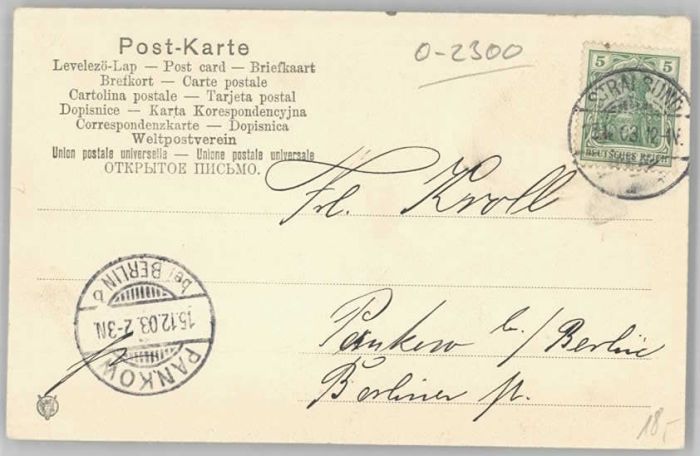 Post-Karte
Levelezö-Lap — Post card — Briefkaart
Brefkort — Carte postale
Cartolina postale — Tarjeta postal
Dopisnice — Karta Korespondencyjna
Correspondenzkarte — Dopisnica
Weltpostverein
Union postale universella — Unione postale universale
ОТКРЫТОЕ ПИСЬМО.
0-2300
5 5
STRALSUND
03. 12-1N.
DEUTSCHES REICH
Frl. Kroll
bei BERLIN b
15.12.03. 2-3N.
PANKOW
Pankow b./Berlin
Berliner st.
18,-